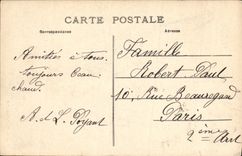 CARTE POSTALE
Correspondance
Adresse
Amitiés à tous.
toujours beau
chaud.
A. de L. Poyant
Famille
Robert Paul
10, Rue Beauregard
Paris
2ème Arrt